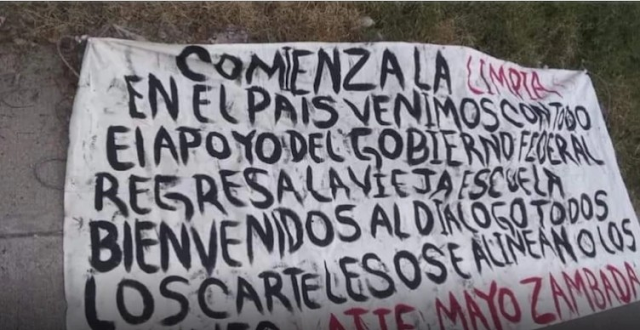 COMIENZA LA LIMPIA
EN EL PAIS VENIMOS CON TODO
El APOYO DEL GOBIERNO FEDERAL
REGRESA LA VIEJA ESCUELA
BIENVENIDOS AL DIALOGO TODOS
LOS CARTELES O SE ALINEAN O LOS
MAYO ZAMBADA